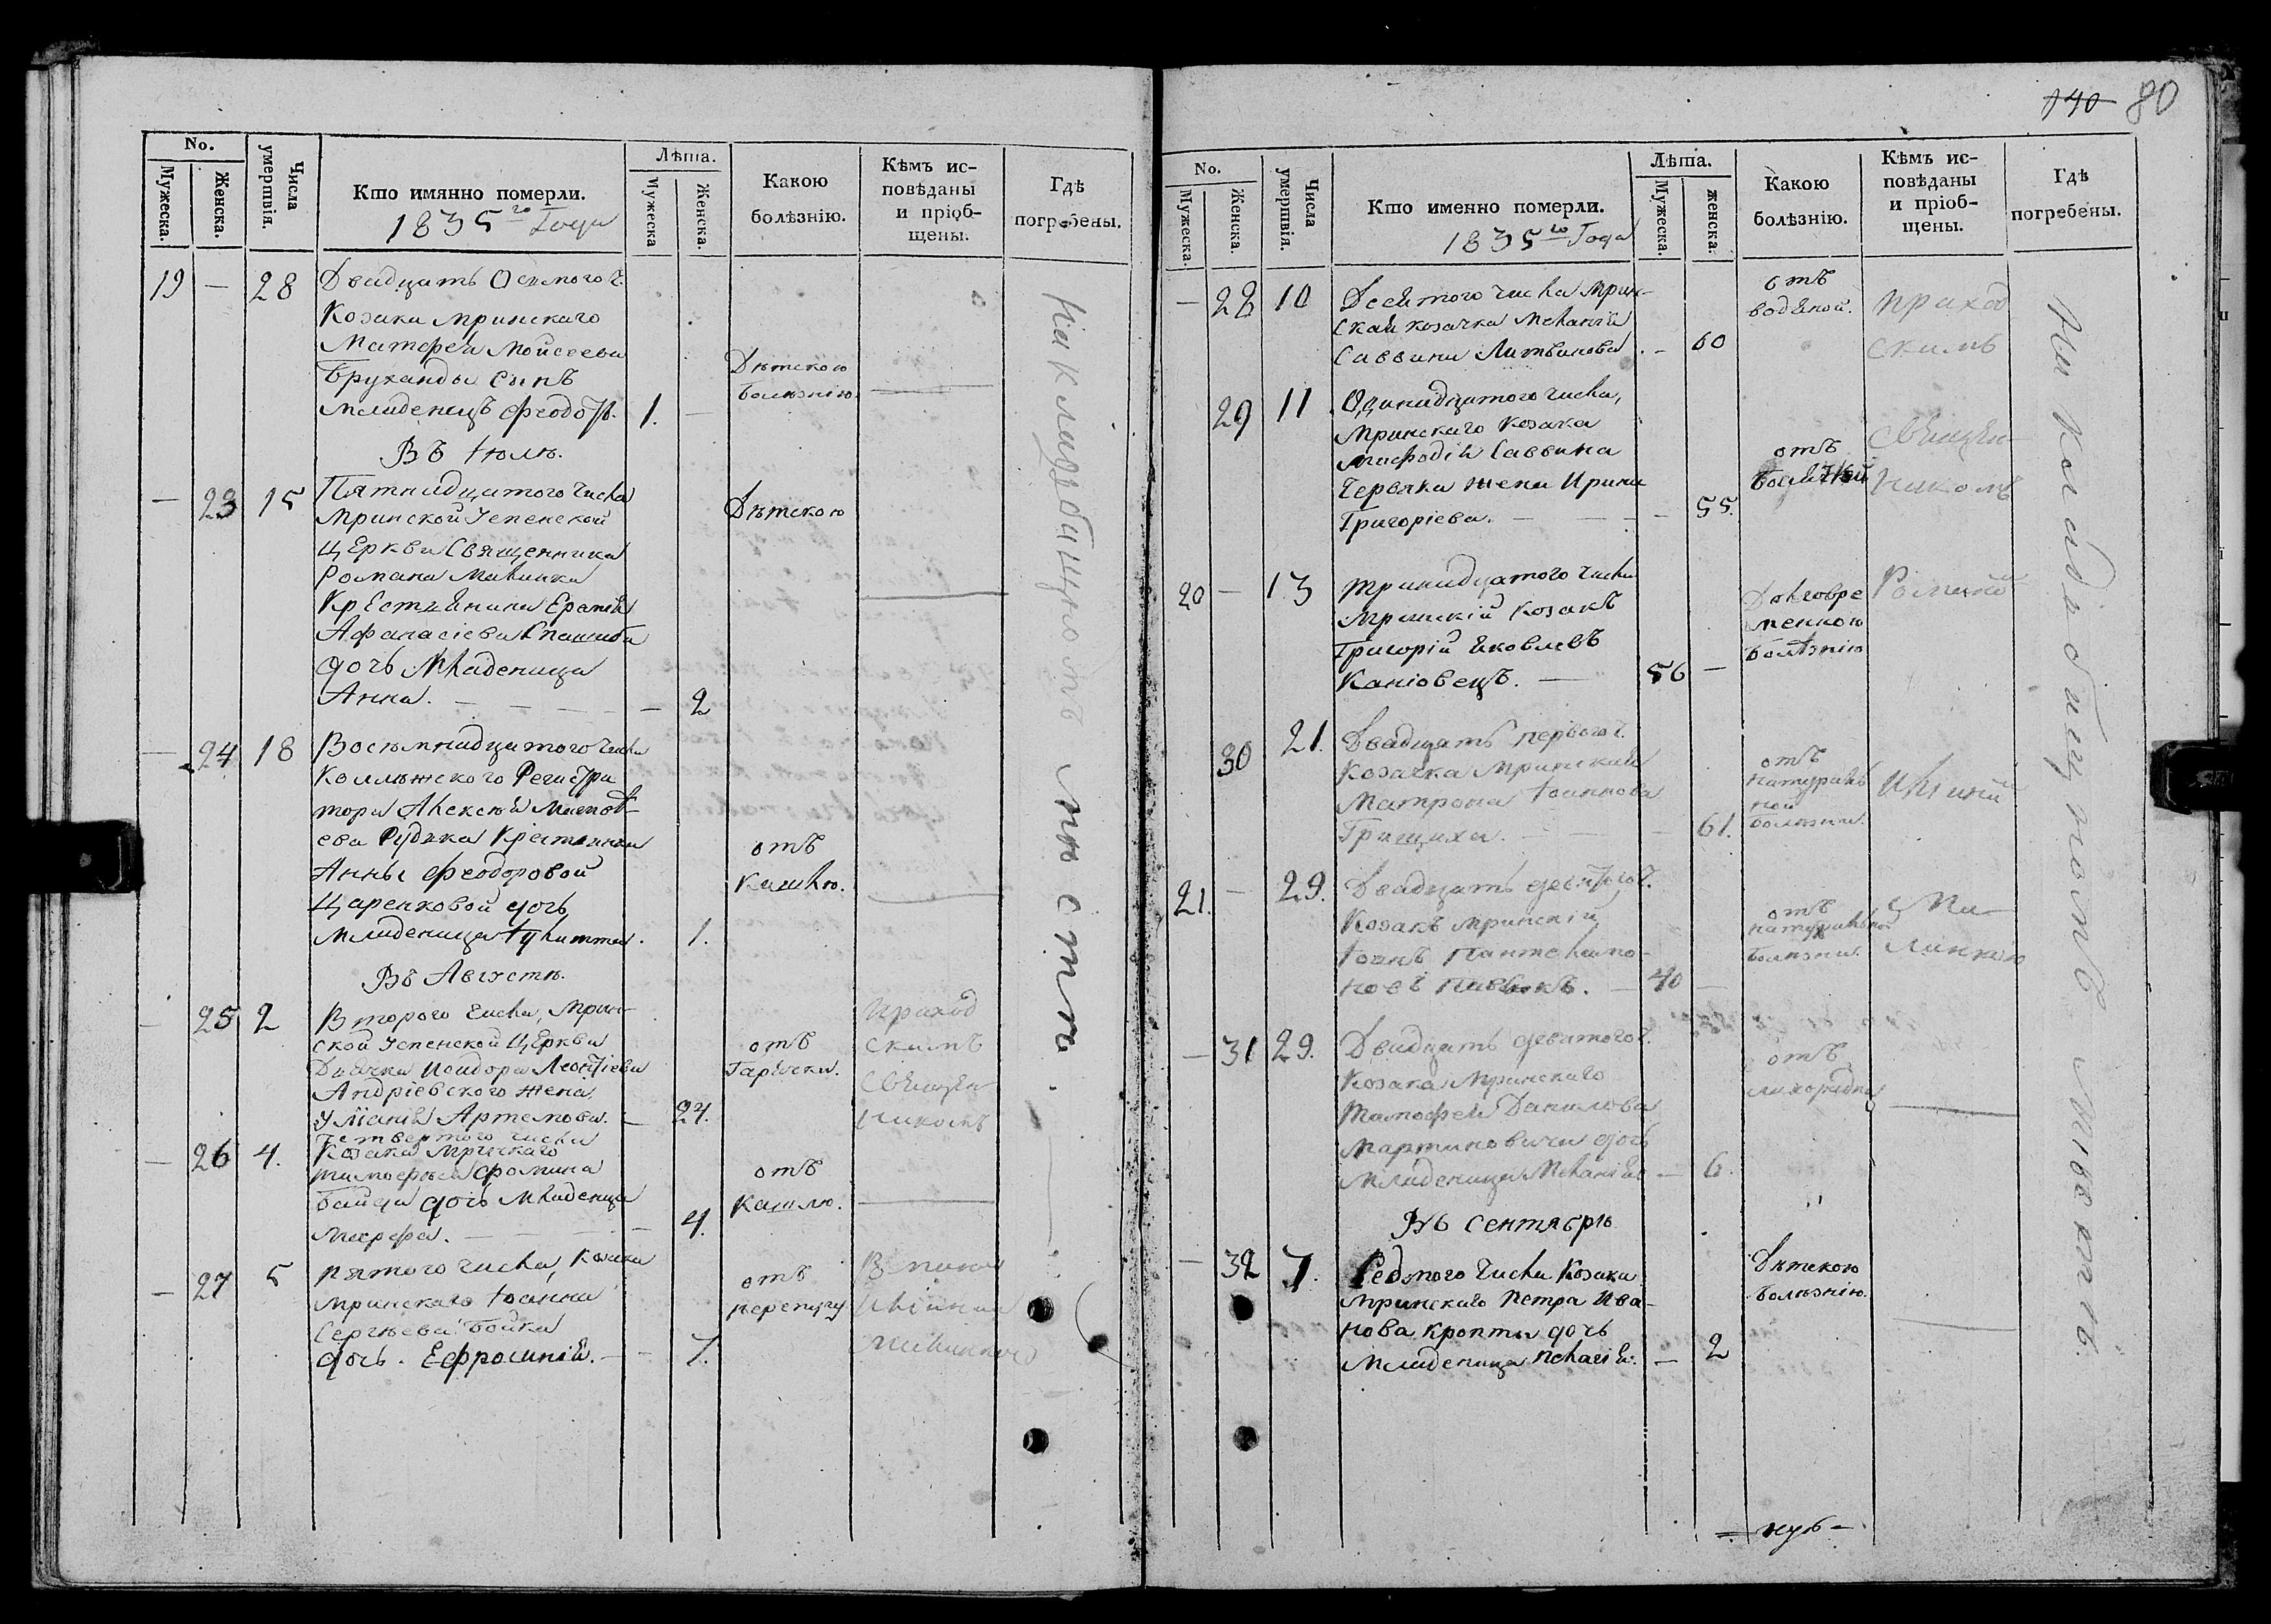 No.
Мужеска.
Женска.
Числа умертвія.
Кто имянно померли.
1835го Года
Лѣта.
Мужеска
Женска.
Какою болѣзнію.
Кѣмъ исповѣданы и пріобщены.
Гдѣ погребены.
19 — 28 Двадцать Осмого ч.
Козака Мринскаго
Матфея Мойсеева
Бруханды сынъ
младенецъ Феодоръ. 1. —
Дѣтскою
болѣзнію.
Въ Іюлѣ.
— 23 15 Пятнадцатого числа
Мринской Успенской
Церкви Священника
Романа Малинки
Крестьянина
Афанасіева
дочь Младеница
Анна. — 2
Дѣтскою
— 24 18 Восемнадцатого числа
Коллѣжского Регистра
тора Алексѣя Матѳѣ-
ева Рудька Крестьянки
Анны Феодоровой
Царенковой дочь
младеница Іулитта. 1.
отъ
Кашлю.
Въ Августѣ.
— 25 2 Второго числа, Мрин-
ской Успенской Церкви
Дьячка Исидора Леонтіева
Андріевского жена
Уліанія Артемова. — 24.
отъ
Гарячки.
Приход
скимъ
Священ
никомъ
— 26 4. Четвертого числа
Козака Мринскаго
Тимофѣя Фомина
дочь Младеница
Марфа. — 4.
отъ
Кашлю.
— 27 5 Пятого числа, Козака
Мринскаго Іоанна
Сергѣева Бойка
дочь. Ефросинія. — 7.
отъ
перепугу
На кладбищномъ мѣстѣ
140 80
No.
Мужеска.
Женска.
Числа умертвія.
Кто именно померли.
1835го Года
Лѣта.
Мужеска.
женска.
Какою болѣзнію.
Кѣмъ исповѣданы и пріобщены.
Гдѣ погребены.
— 28 10 Десятого числа Мрин-
ская козачка Меланія
Саввина Литвинова — 60
отъ
водяной.
Приход
скимъ
29 11 Одинадцатого числа,
Мринскаго Козака
Мефодія Саввина
Червяка жена Ирина
Григоріева. — 55.
отъ
Священ-
никомъ
20 — 13 Тринадцатого числа
Мринскій Козакъ
Григорій Яковлевъ
Каніовецъ. — 56 —
Долговре
менною
болѣзнію
Романом
30 21. Двадцать первого ч.
Козачка Мринская
Матрона Іоаннова
Грициха. — 61.
отъ
натураль
ной
болѣзни.
21. — 29. Двадцать девятого ч.
Козакъ Мринскій
Іоанъ Пантелеимо-
новъ — 40 —
отъ
натуральной
болѣзни.
Ма-
линкою
— 31 29. Двадцать девятого ч.
Козака Мринскаго
Тимофея Данилова
Мартиновича дочь
Младеница Меланія — 6.
отъ
лихорадки
Въ Сентябрѣ
— 32 7. Седмого числа Козака
Мринскаго Петра Ива-
нова Кропты дочь
Младеница Пелагія. — 2
Дѣтскою
болѣзнію.
На кладбищномъ мѣстѣ.